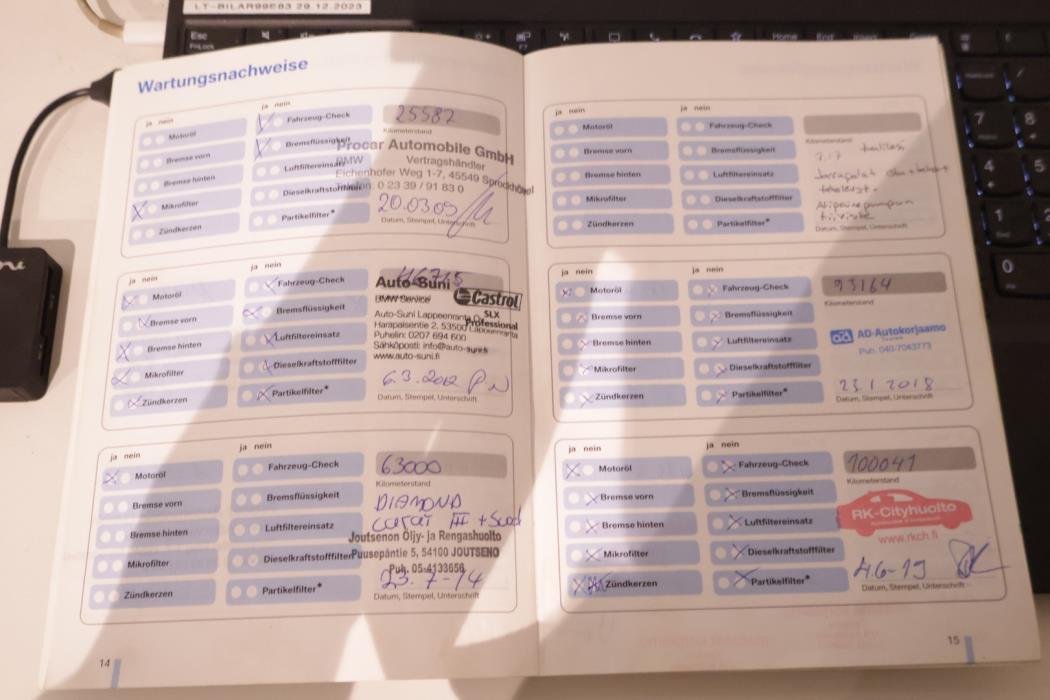 LT-BILAR99E83 29.12.2023
Esc
FnLock
F7
Home
End
Insert
7
8
4
5
1
2
0
Wartungsnachweise
ja nein
Motoröl
Bremse vorn
Bremse hinten
Mikrofilter
Zündkerzen
ja nein
Fahrzeug-Check
Bremsflüssigkeit
Luftfiltereinsatz
Dieselkraftstofffilter
Partikelfilter*
25587
Kilometerstand
Procar Automobile GmbH
BMW Vertragshändler
Eichenhofer Weg 1-7, 45549 Sprockhövel
Telefon: 0 23 39 / 91 83 0
20.03.09
Datum, Stempel, Unterschrift
ja nein
Motoröl
Bremse vorn
Bremse hinten
Mikrofilter
Zündkerzen
ja nein
Fahrzeug-Check
Bremsflüssigkeit
Luftfiltereinsatz
Dieselkraftstofffilter
Partikelfilter*
46715
Auto-Suni
BMW Service
Castrol
SLX
Professional
Auto-Suni Lappeenranta
Harapaisentie 2, 53500 Lappeenranta
Puhelin: 0207 694 600
Sähköposti: info@auto-suni.fi
www.auto-suni.fi
6.3.2012
Datum, Stempel, Unterschrift
ja nein
Motoröl
Bremse vorn
Bremse hinten
Mikrofilter
Zündkerzen
ja nein
Fahrzeug-Check
Bremsflüssigkeit
Luftfiltereinsatz
Dieselkraftstofffilter
Partikelfilter*
63000
Kilometerstand
DIAMOND
Joutsenon Öljy- ja Rengashuolto
Puusepäntie 5, 54100 JOUTSENO
Puh. 05-4133656
23.7-14
Datum, Stempel, Unterschrift
14
ja nein
Motoröl
Bremse vorn
Bremse hinten
Mikrofilter
Zündkerzen
ja nein
Fahrzeug-Check
Bremsflüssigkeit
Luftfiltereinsatz
Dieselkraftstofffilter
Partikelfilter*
Kilometerstand
Datum, Stempel, Unterschrift
ja nein
Motoröl
Bremse vorn
Bremse hinten
Mikrofilter
Zündkerzen
ja nein
Fahrzeug-Check
Bremsflüssigkeit
Luftfiltereinsatz
Dieselkraftstofffilter
Partikelfilter*
93164
Kilometerstand
ad AD-Autokorjaamo
Puh. 040-7043773
23.1.2018
Datum, Stempel, Unterschrift
ja nein
Motoröl
Bremse vorn
Bremse hinten
Mikrofilter
Zündkerzen
ja nein
Fahrzeug-Check
Bremsflüssigkeit
Luftfiltereinsatz
Dieselkraftstofffilter
Partikelfilter*
100041
Kilometerstand
RK-Cityhuolto
www.rkch.fi
4.6-19
Datum, Stempel, Unterschrift
15